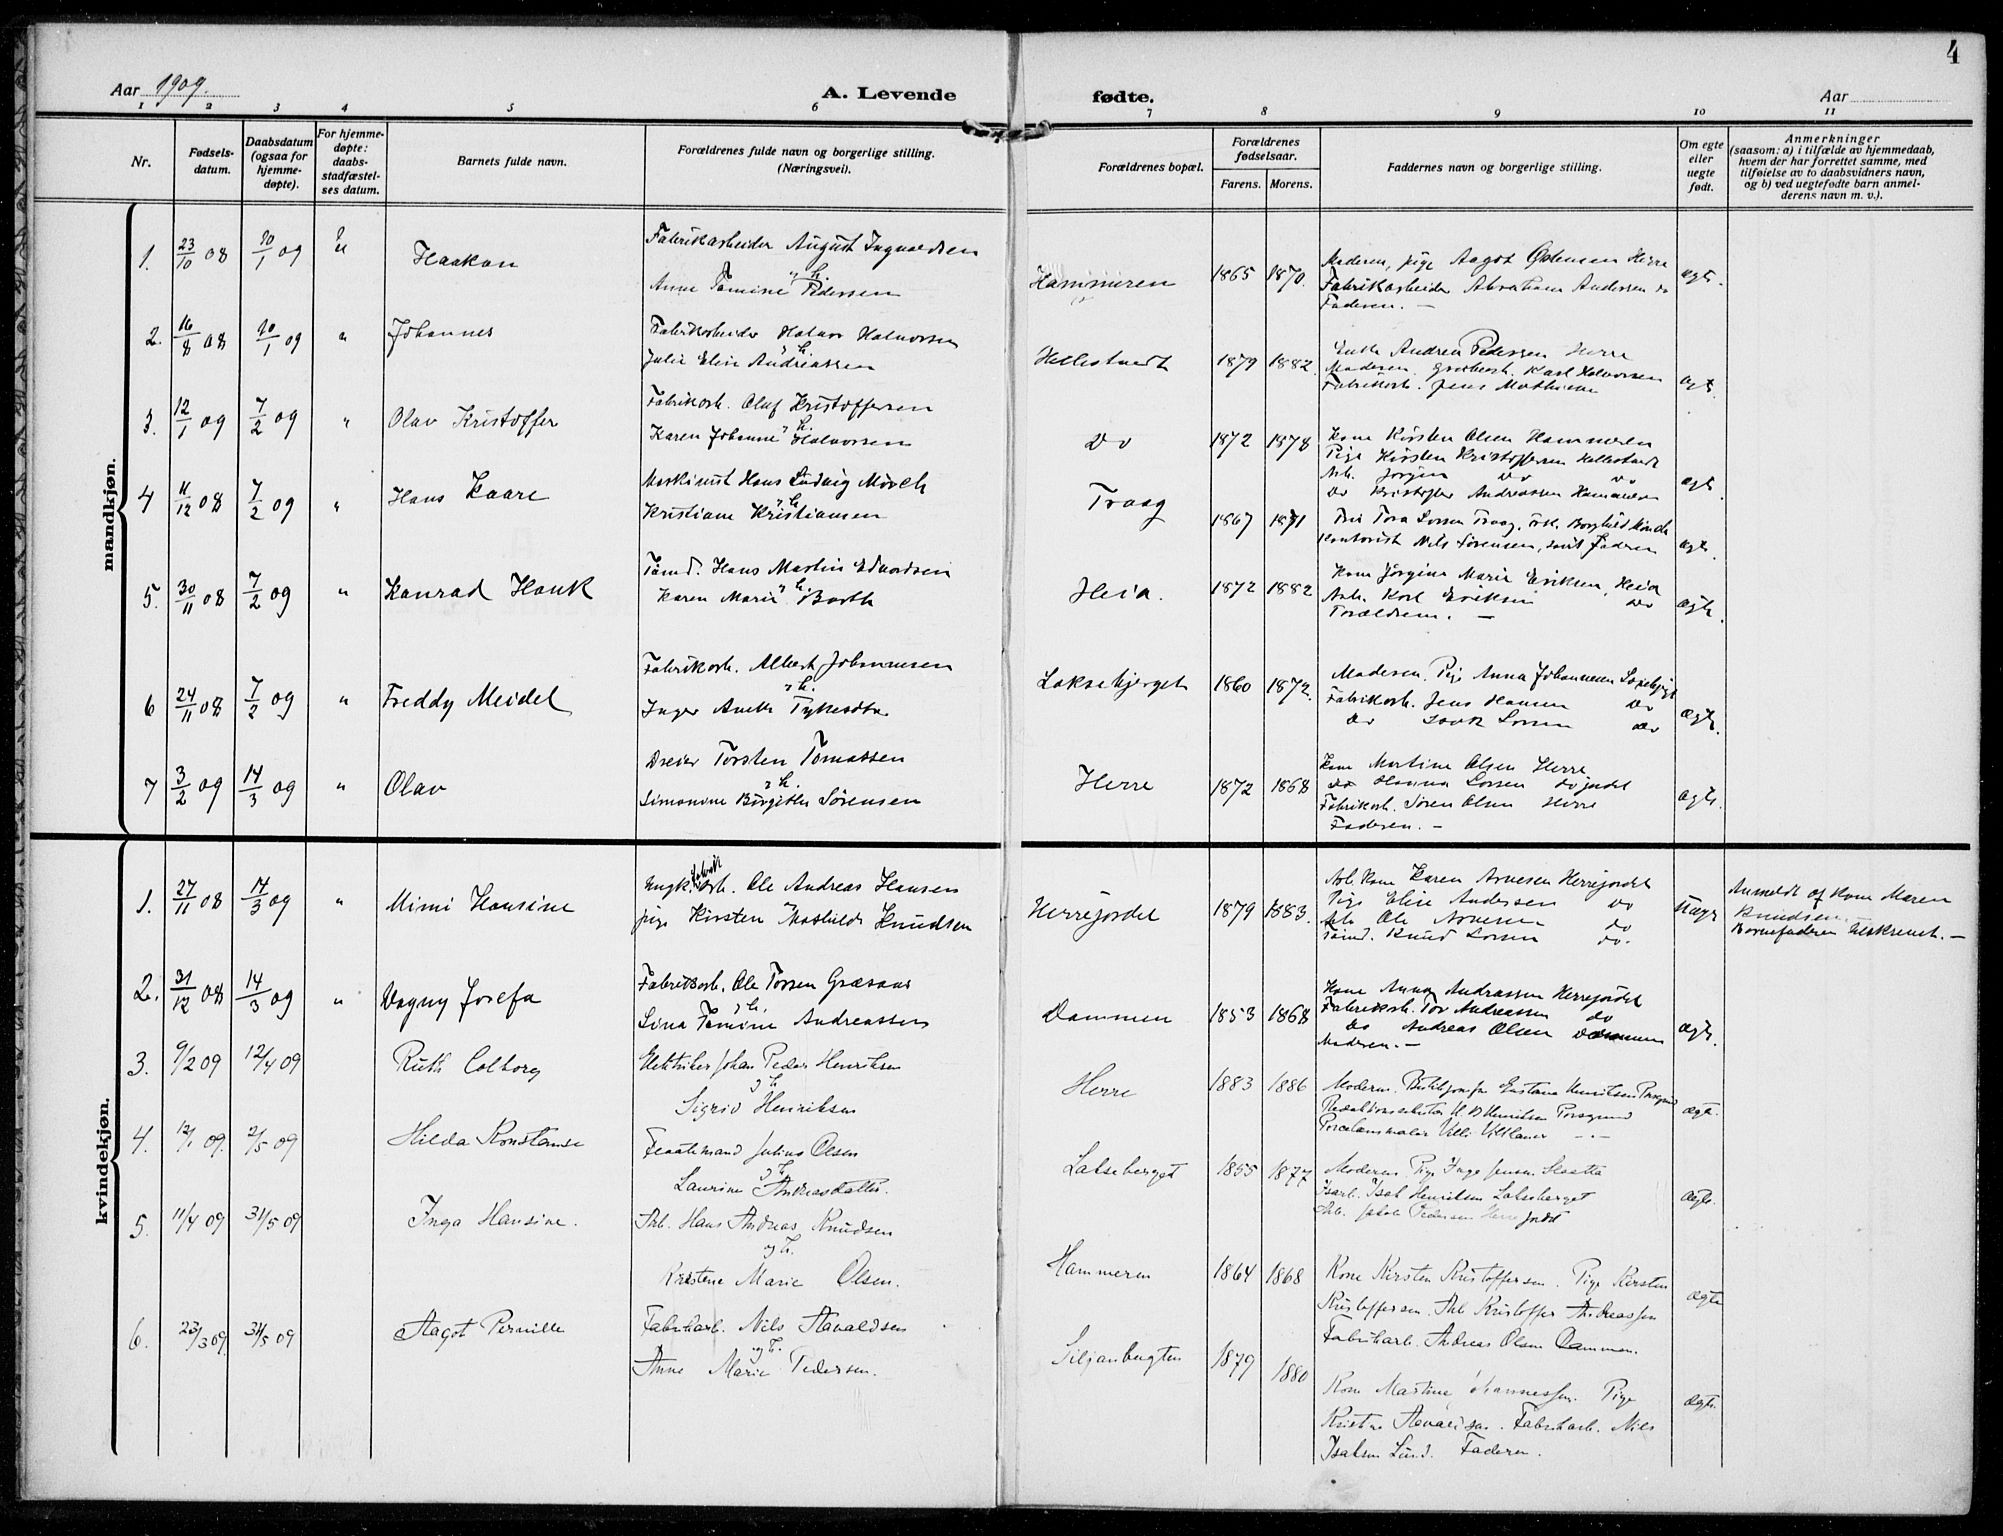 4
Aar 1909. A. Levende fødte. Aar
1 2 3 4 5 6 7 8 9 10 11
Nr.
Fødsels-
datum.
Daabsdatum
(ogsaa for
hjemme-
døpte).
For hjemme-
døpte:
daabs-
stadfæstel-
ses datum.
Barnets fulde navn.
Forældrenes fulde navn og borgerlige stilling.
(Næringsvei).
Forældrenes bopæl.
Forældrenes
fødselsaar.
Farens. Morens.
Faddernes navn og borgerlige stilling.
Om egte
eller
uegte
født.
Anmerkninger
(saasom: a) i tilfælde av hjemmedaab,
hvem der har forrettet samme, med
tilføielse av to daabsvidners navn,
og b) ved uegtefødte barn anmel-
derens navn m. v.).
mandkjøn.
1. 23/10 08 10/1 09 Haakon
Fabrikarbeider August Ingvaldsen
og h.
Anne Tomine Pedersen
Hammeren 1865 1870.
Moderen, pige Aagot Østensen Herre
Fabrikarbeider Abraham Andersen do
Faderen. —
ægte.
2. 16/8 08 10/1 09 " Johannes
Fabrikarbeider Halvor Halvorsen
og h.
Julie Elise Andreassen
Hellestvedt 1879 1882.
Enke Andrea Pedersen Herre
Moderen. Karl Halvorsen
Fabrikarb. Jens Mathisen
ægte.
3. 12/1 09 7/2 09 " Olav Kristoffer
Fabrikarb. Oluf Kristoffersen
og h.
Karen Johanne Halvorsen
Do 1872 1878
Kone Kirsten Olsen Hammeren
Pige Kirsten Kristoffersen Hellestvedt
Arb. Jørgen Do Do
Do Kristoffer Andreassen Hammeren
ægte.
4 11/12 08 7/2 09 " Hans Kaare
Maskinist Hans Ludvig Mørch
og h.
Kristiane Kristiansen
Traag 1867 1871
Tora Larsen Traag,
Kontorist Nils Sørensen, samt Faderen
ægte.
5. 30/11 08 7/2 09 " Konrad Hauk
Tømd. Hans Martin Edvardsen
og h.
Karen Marie Barth
Heia. 1872 1882
Kone Jørgine Marie Eriksen, Heia
Arb. Karl Eriksen Do
Forældrene. —
ægte.
6 24/11 08 7/2 09 " Freddy Meidel
Fabrikarb. Albert Johannesen
og h.
Inger Anette
Laksebjerget 1860 1872.
Moderen. Pige Anna Johannesen
Fabrikarb. Jens Hansen Do
Do Isak Larsen do
ægte.
7 3/2 09 14/3 09 " Olav
Dreier Torsten Tomassen
og h.
Simonine Birgitte Sørensen
Herre 1872 1868
Kone Martine Olsen Herre
do Hanna Larsen
Fabrikarb. Søren Olsen Herre
Faderen. —
ægte.
kvindekjøn.
1. 27/11 08 14/3 09 " Mimi Hansine
Ungk. fabrik arb. Ole Andreas Hansen
pige Kirsten Mathilde Knudsen
Herrejordet 1879 1883.
Arb. kone Karen Arvesen Herrejordet
Pige Elise Andersen Do
Arb. Ole Arvesen do
Tømd. Knud Larsen do.
Uægte
Anmeldt af Kone Maren
Knudsen.
Barnefaderen —
2. 31/12 08 14/3 09 " Dagny Josefa
Fabrikarb. Ole Torsen Græsaas
og h.
Lina Tomine Andreassen
Dammen 1853 1868
Kone Anna Andreassen Herrejordet
Fabrikarb. Tor Andreassen do
Do Andreas Olsen Dammen
Moderen. —
ægte.
3. 9/2 09 12/4 09 Ruth Solborg
Elektriker Johan Peder Henriksen
og h.
Sigrid Henriksen
Herre 1883 1886
Moderen. Gustava Henriksen Porsgrund
Henriksen Porsgrund
Porcelænsmaler Villi
ægte.
4. 12/1 09. 2/5 09 Hilda Konstanse
Flaatemand Julius Olsen
og h.
Laurine Andreasdatter.
Lakseberget 1855 1877
Moderen Pige Inga Jensen
Isak Henriksen Lakseberget
Arb. Jakob Pedersen Herrejordet
ægte.
5. 11/4 09 31/5 09 Inga Hansine.
Arb. Hans Andreas Knudsen
og h.
Kirstene Marie Olsen.
Hammeren 1864 1868
Kone Kirsten Kristoffersen. Pige Kirsten
Kristoffersen. Arb Kristoffer Andreassen
Fabrikarb. Andreas Olsen Dammen.
ægte
6. 23/3 09. 31/5 09 Aagot Pernille
Fabrikarb. Nils Havaldsen
og h.
Anne Marie Pedersen.
Siljanbugten 1879 1880
Kone Martine Johannessen. Pige
Fabrikarb. Nils
Isaksen Lund. Faderen.
ægte.